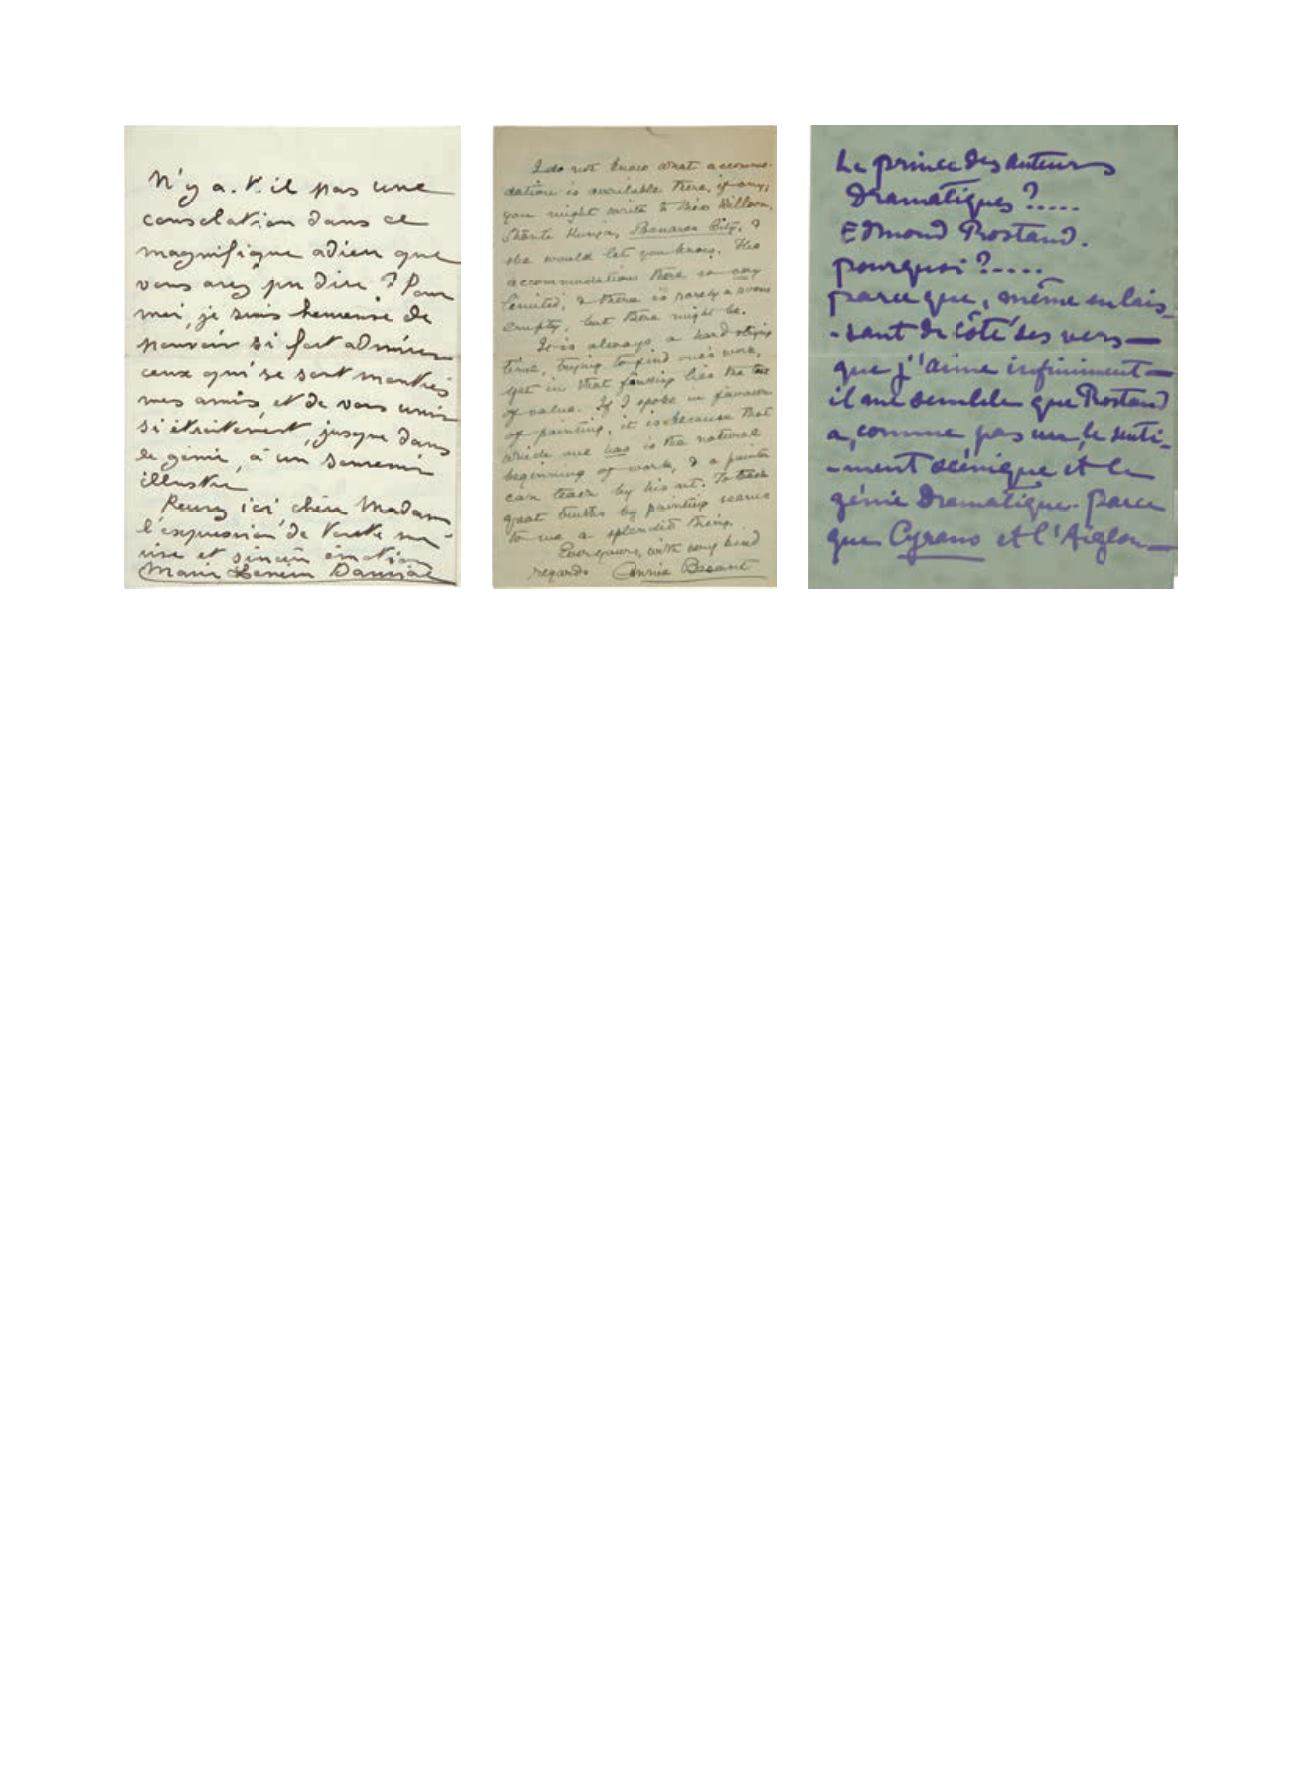 N'y a-t-il pas une
consolation dans ce
magnifique adieu que
vous avez pu dire ? Pour
moi, je suis heureuse de
pouvoir si fort admirer
ceux qui se sont montrés
mes amis, et de vous unir
si étroitement, jusque dans
le génie, à un souvenir
illustre
Recevez ici, chère Madame
l'expression de toute ma
et sincère émotion
Marie Lenéru
I do not know what accommo-
dation is available there, if any;
you might write to Miss Willson,
Shanti Kunja, Benares City, &
she would let you know. The
accommodations there is very
limited, & there is rarely a room
empty, but there might be.
It is always a hard
time, trying to find one's work,
yet in that finding lies the
of value. If I spoke in favour
of painting, it is because that
which one has is the natural
beginning of work, & a painter
can teach by his art. To teach
great truths by painting seems
to me a splendid thing.
Ever yours, with very kind
regards Annie Besant
Le prince des auteurs
Dramatiques ?.....
Edmond Rostand.
pourquoi ?....
parce que, même en lais-
-sant de côté ses vers—
que j'aime infiniment—
il me semble que Rostand
a, comme pas un, le senti-
-ment scénique et le
génie Dramatique. parce
que Cyrano et l'Aiglon—